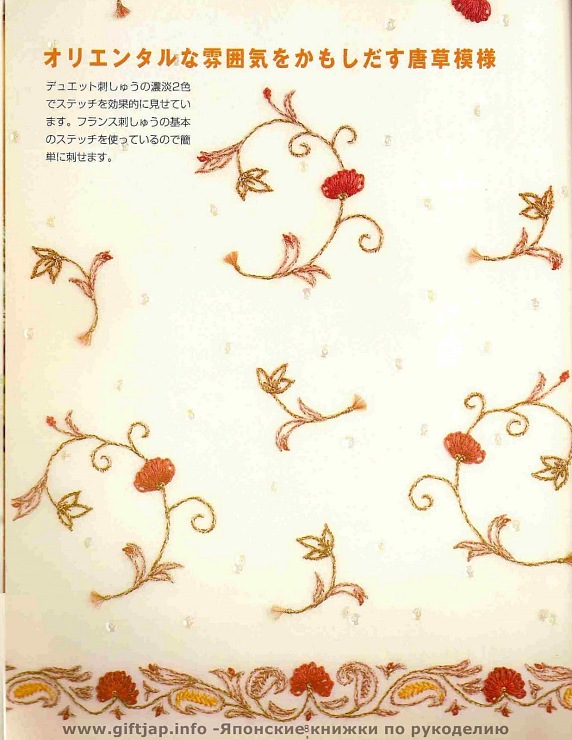 オリエンタルな雰囲気をかもしだす唐草模様
デュエット刺しゅうの濃淡2色
でステッチを効果的に見せてい
ます。フランス刺しゅうの基本
のステッチを使っているので簡
単に刺せます。
8
www.giftjap.info -Японские книжки по рукоделию